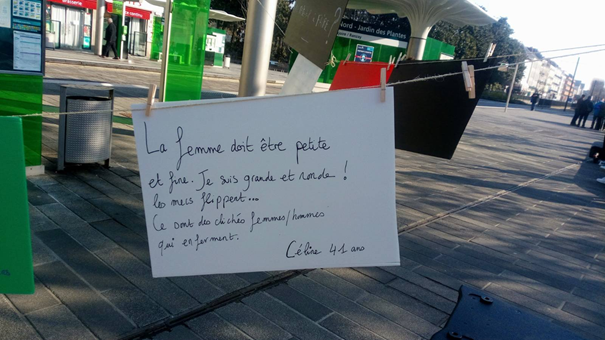 La femme doit être petite
et fine. Je suis grande et ronde !
les mecs flippent...
Ce sont des clichés femmes/hommes
qui enferment.
Céline 41 ans
Nord - Jardin des Plantes